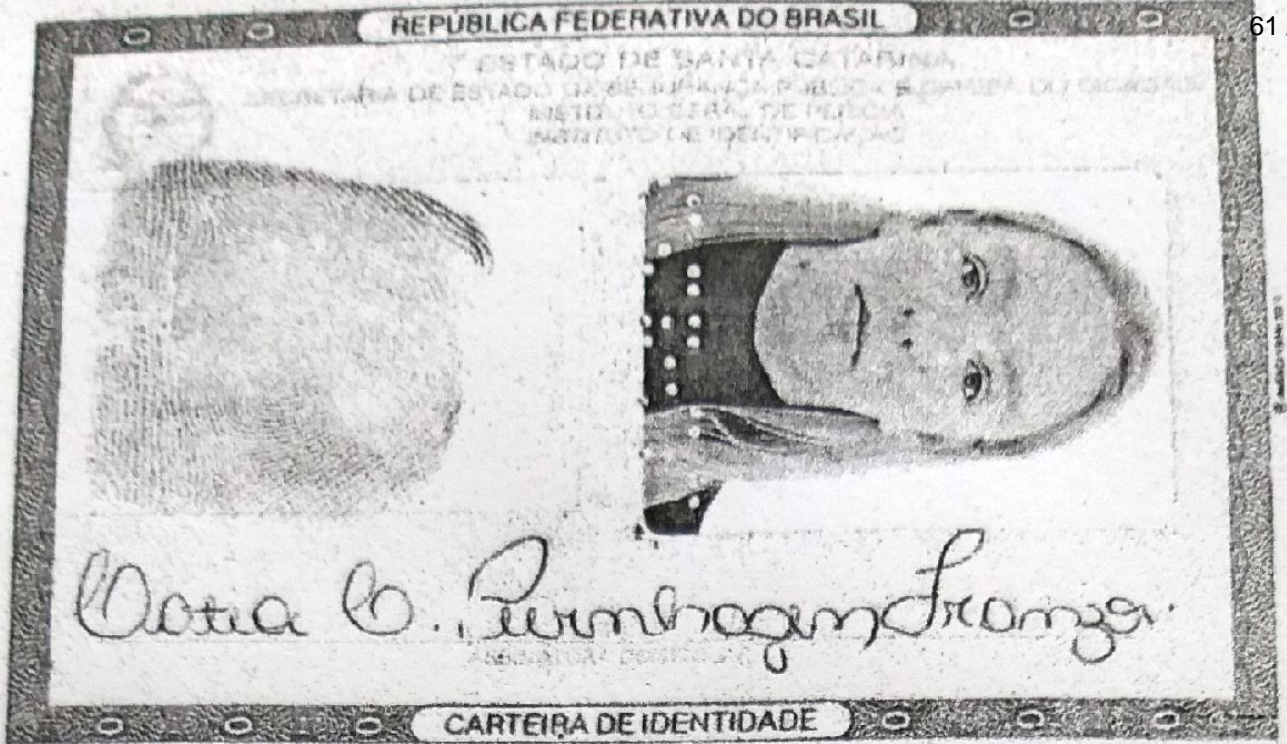 REPÚBLICA FEDERATIVA DO BRASIL
61
ESTADO DE SANTA CATARINA
SECRETARIA DE ESTADO DA SEGURANÇA PÚBLICA E DEFESA DO CIDADÃO
INSTITUTO GERAL DE PERÍCIA
INSTITUTO DE IDENTIFICAÇÃO
Catia C. Purnhagen Franzoi
CARTEIRA DE IDENTIDADE